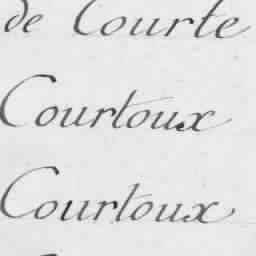 de Courte
Courtoux
Courtoux